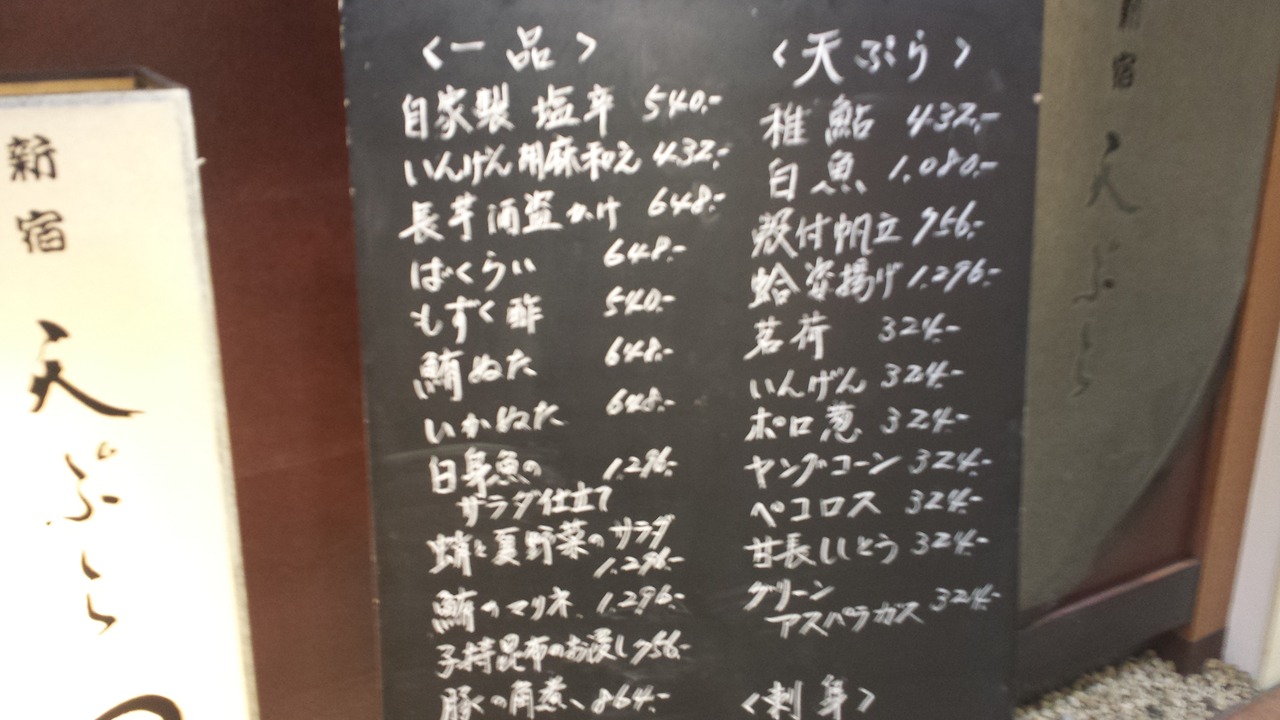 新宿
天ぷら
つ
<一品>
自家製 塩辛 540.-
いんげん胡麻和え 432.-
長芋酒盗かけ 648.-
ばくらい 648.-
もずく酢 540.-
鮪ぬた 648.-
いかぬた 648.-
白身魚の 1.296.-
サラダ仕立て
蛸と夏野菜のサラダ
1.296.-
鮪のマリネ 1.296.-
子持昆布のお浸し 756.-
豚の角煮 864.-
<天ぷら>
稚鮎 432.-
白魚 1.080.-
殻付帆立 756.-
蛤姿揚げ 1.296.-
茗荷 324.-
いんげん 324.-
ポロ葱 324.-
ヤングコーン 324.-
ペコロス 324.-
甘長ししとう 324.-
グリーン
アスパラガス 324.-
<刺身>
新宿
天ぷら